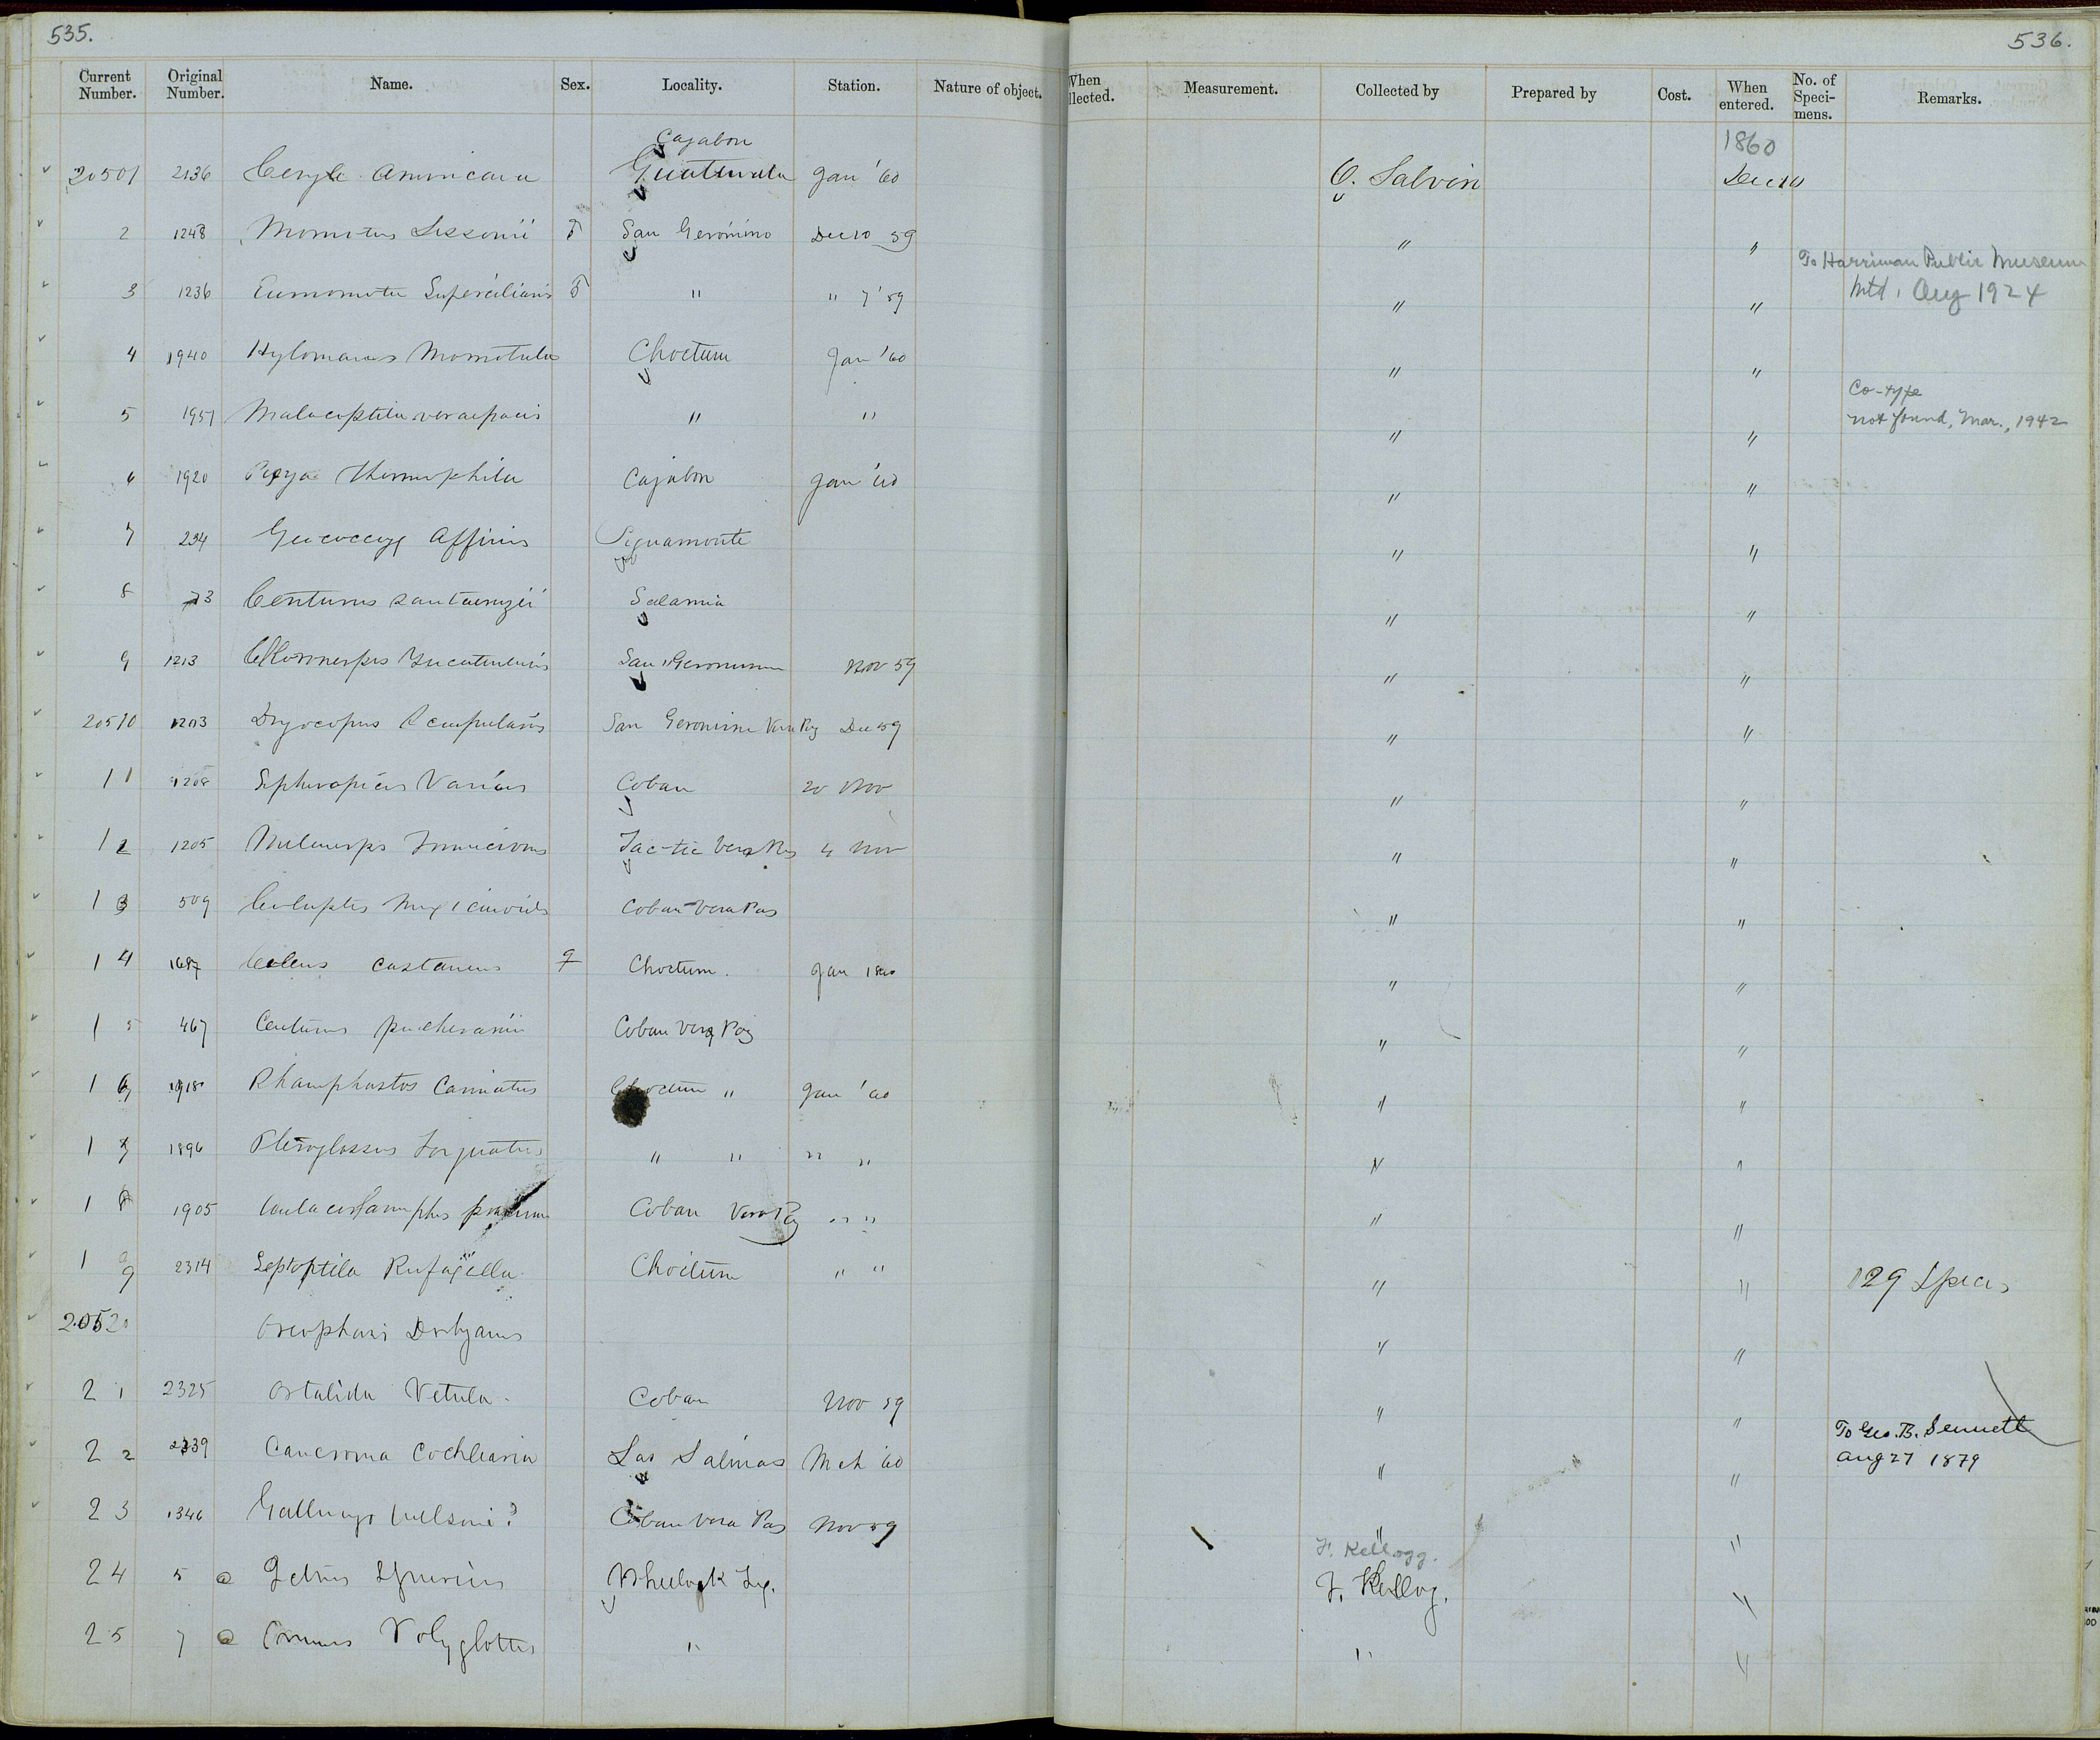 535.
536.
Current Number. Original Number. Name. Sex. Locality. Station. Nature of object. When llected. Measurement. Collected by Prepared by Cost. When entered. No. of Speci-mens. Remarks.
Cajabon 1860
20501 2136 Ceryle Americana Guatemala Jan '60 O. Salvin Dec 10
2 1248 Momotus Lessonii ♂ San Geronimo Dec 10 59 " "
To Harriman Public Museum
3 1236 Eumomota Superciliaris ♂ " " 7 '59 " " Mtd. Aug 1924
4 1940 Hylomanes Momotula Choctum Jan '60 " "
Co-type
5 1957 Malacoptila veraepacis " " " " not found, Mar., 1942
6 1920 Piaya Thermophila Cajabon Jan '60 " "
7 234 Geococcyx Affinis " "
8 73 Centurus Santacruzii Salama " "
9 1213 Chloronerpes Yucatanensis San Geronimo Nov 59 " "
20510 1203 Dryocopus Scapularis San Geronimo Vera Paz Dec 59 " "
11 1208 Sphyrapicus Varius Coban 20 Nov " "
12 1205 Melanerpes Formicivorus Tac-tic Vera Paz 4 Nov " "
13 509 Colaptes Mexicanoides Coban Vera Paz " "
14 1687 Celeus castaneus ♀ Choctum. Jan 1860 " "
15 467 Centurus pucheranii Coban Vera Paz " "
16 1918 Rhamphastos Carinatus Choctum " Jan '60 " "
17 1896 Pteroglossus Torquatus " " " " " "
18 1905 Aulacorhamphus prasinus Coban Vera Paz " " " "
19 2314 Leptoptila Rufaxilla Choctum " " " " 129 Specs
20520 Oreophasis Derbyanus " "
21 2325 Ortalida Vetula. Coban Nov 59 " "
To Geo. B. Sennett
22 2339 Cancroma Cochlearia Las Salinas Mch '60 " " Aug 27 1879
23 1346 Gallinago Wilsoni? Coban Vera Paz Nov 59 " "
F. Kellogg.
24 5 a Icterus Spurius Wheelock Tex. F. Kellog. "
25 7 a Mimus Polyglottus " " "